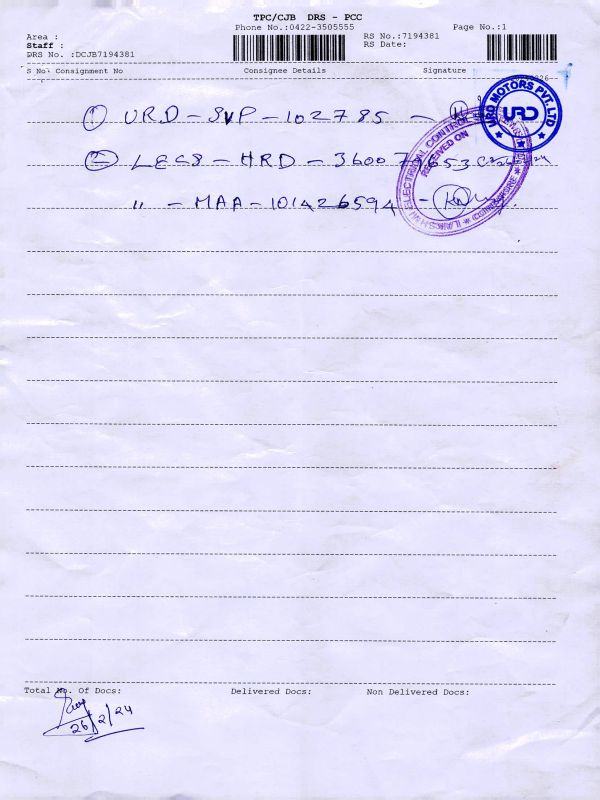 TPC/CJB DRS - PCC
Phone No.:0422-3505555 Page No.:1
Area : RS No.:7194381
Staff : RS Date:
DRS No. :DCJB7194381
S No. Consignment No Consignee Details Signature
① URD - SVP - 102785 -
URD MOTORS PVT. LTD
URD
② LECS - HRD - 360078653
ELECTRICAL CONTROL
RECEIVED ON
" - MAA - 101426594 -
Total No. Of Docs: Delivered Docs: Non Delivered Docs:
26/2/24